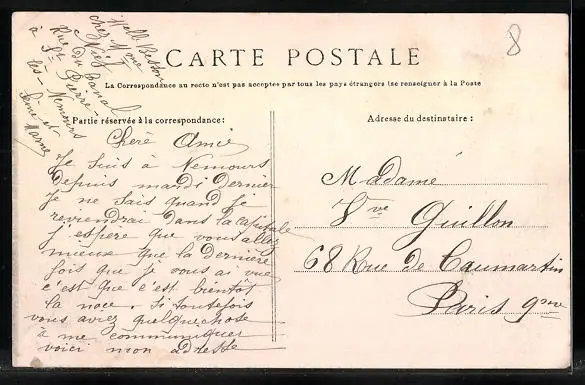 8
Mell Besson
chez Mme
Niez
Rue du Canal
à St Pierre
les Nemours
Seine et
Marne
CARTE POSTALE
La Correspondance au recto n'est pas acceptée par tous les pays étrangers (se renseigner à la Poste
Partie réservée à la correspondance :
Adresse du destinataire :
Chère Amie
Je suis à Nemours
Depuis mardi Dernier
Je ne sais quand je
reviendrai Dans la capitale
j'espère que vous allez
mieux que la dernière
fois que je vous ai vue
c'est que c'est bientôt
la noce. Si toutefois
vous aviez quelque chose
à me communiquer
voici mon adresse
Madame
Vve Guillon
68 Rue de Caumartin
Paris 9me